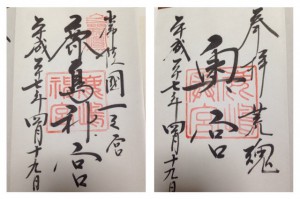 常陸國一之宮
鹿島神宮
平成廿七年四月十九日
奉拝 荒魂
奥宮
平成廿七年四月十九日